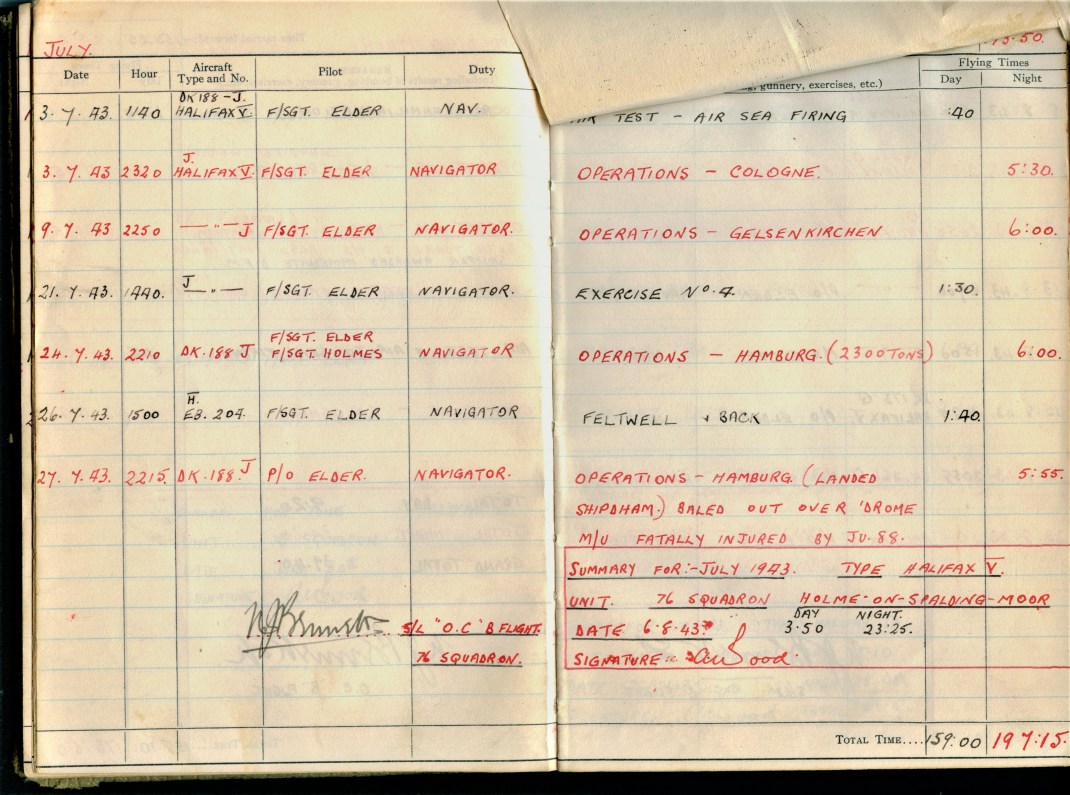 JULY.
73.50.
Date Hour Aircraft Type and No. Pilot Duty
gunnery, exercises, etc.) Flying Times Day Night
3. 7. 43. 1140 DK 188 – J. HALIFAX V. F/SGT. ELDER NAV.
AIR TEST – AIR SEA FIRING :40
3. 7. 43 2320 J. HALIFAX V. F/SGT. ELDER NAVIGATOR
OPERATIONS – COLOGNE. 5:30.
9. 7. 43 2250 — " — J F/SGT. ELDER NAVIGATOR.
OPERATIONS – GELSENKIRCHEN 6:00.
21. 7. 43. 1440. J — " — F/SGT. ELDER NAVIGATOR.
EXERCISE No. 4. 1:30.
F/SGT. ELDER
24. 7. 43. 2210 DK.188 J F/SGT. HOLMES NAVIGATOR
OPERATIONS – HAMBURG. (2300 TONS) 6:00.
26. 7. 43. 1500 H. EB. 204. F/SGT. ELDER NAVIGATOR
FELTWELL + BACK 1:40.
27. 7. 43. 2215. DK.188. J P/O ELDER. NAVIGATOR.
OPERATIONS – HAMBURG. (LANDED 5:55.
SHIPDHAM.) BALED OUT OVER 'DROME
M/U FATALLY INJURED BY JU.88.
SUMMARY FOR:- JULY 1943. TYPE HALIFAX V.
UNIT. 76 SQUADRON HOLME-ON-SPALDING-MOOR
DAY NIGHT.
DATE 6.8.43. 3.50 23.25.
SIGNATURE
S/L "O.C" B FLIGHT.
76 SQUADRON.
TOTAL TIME.... 159:00 197:15.